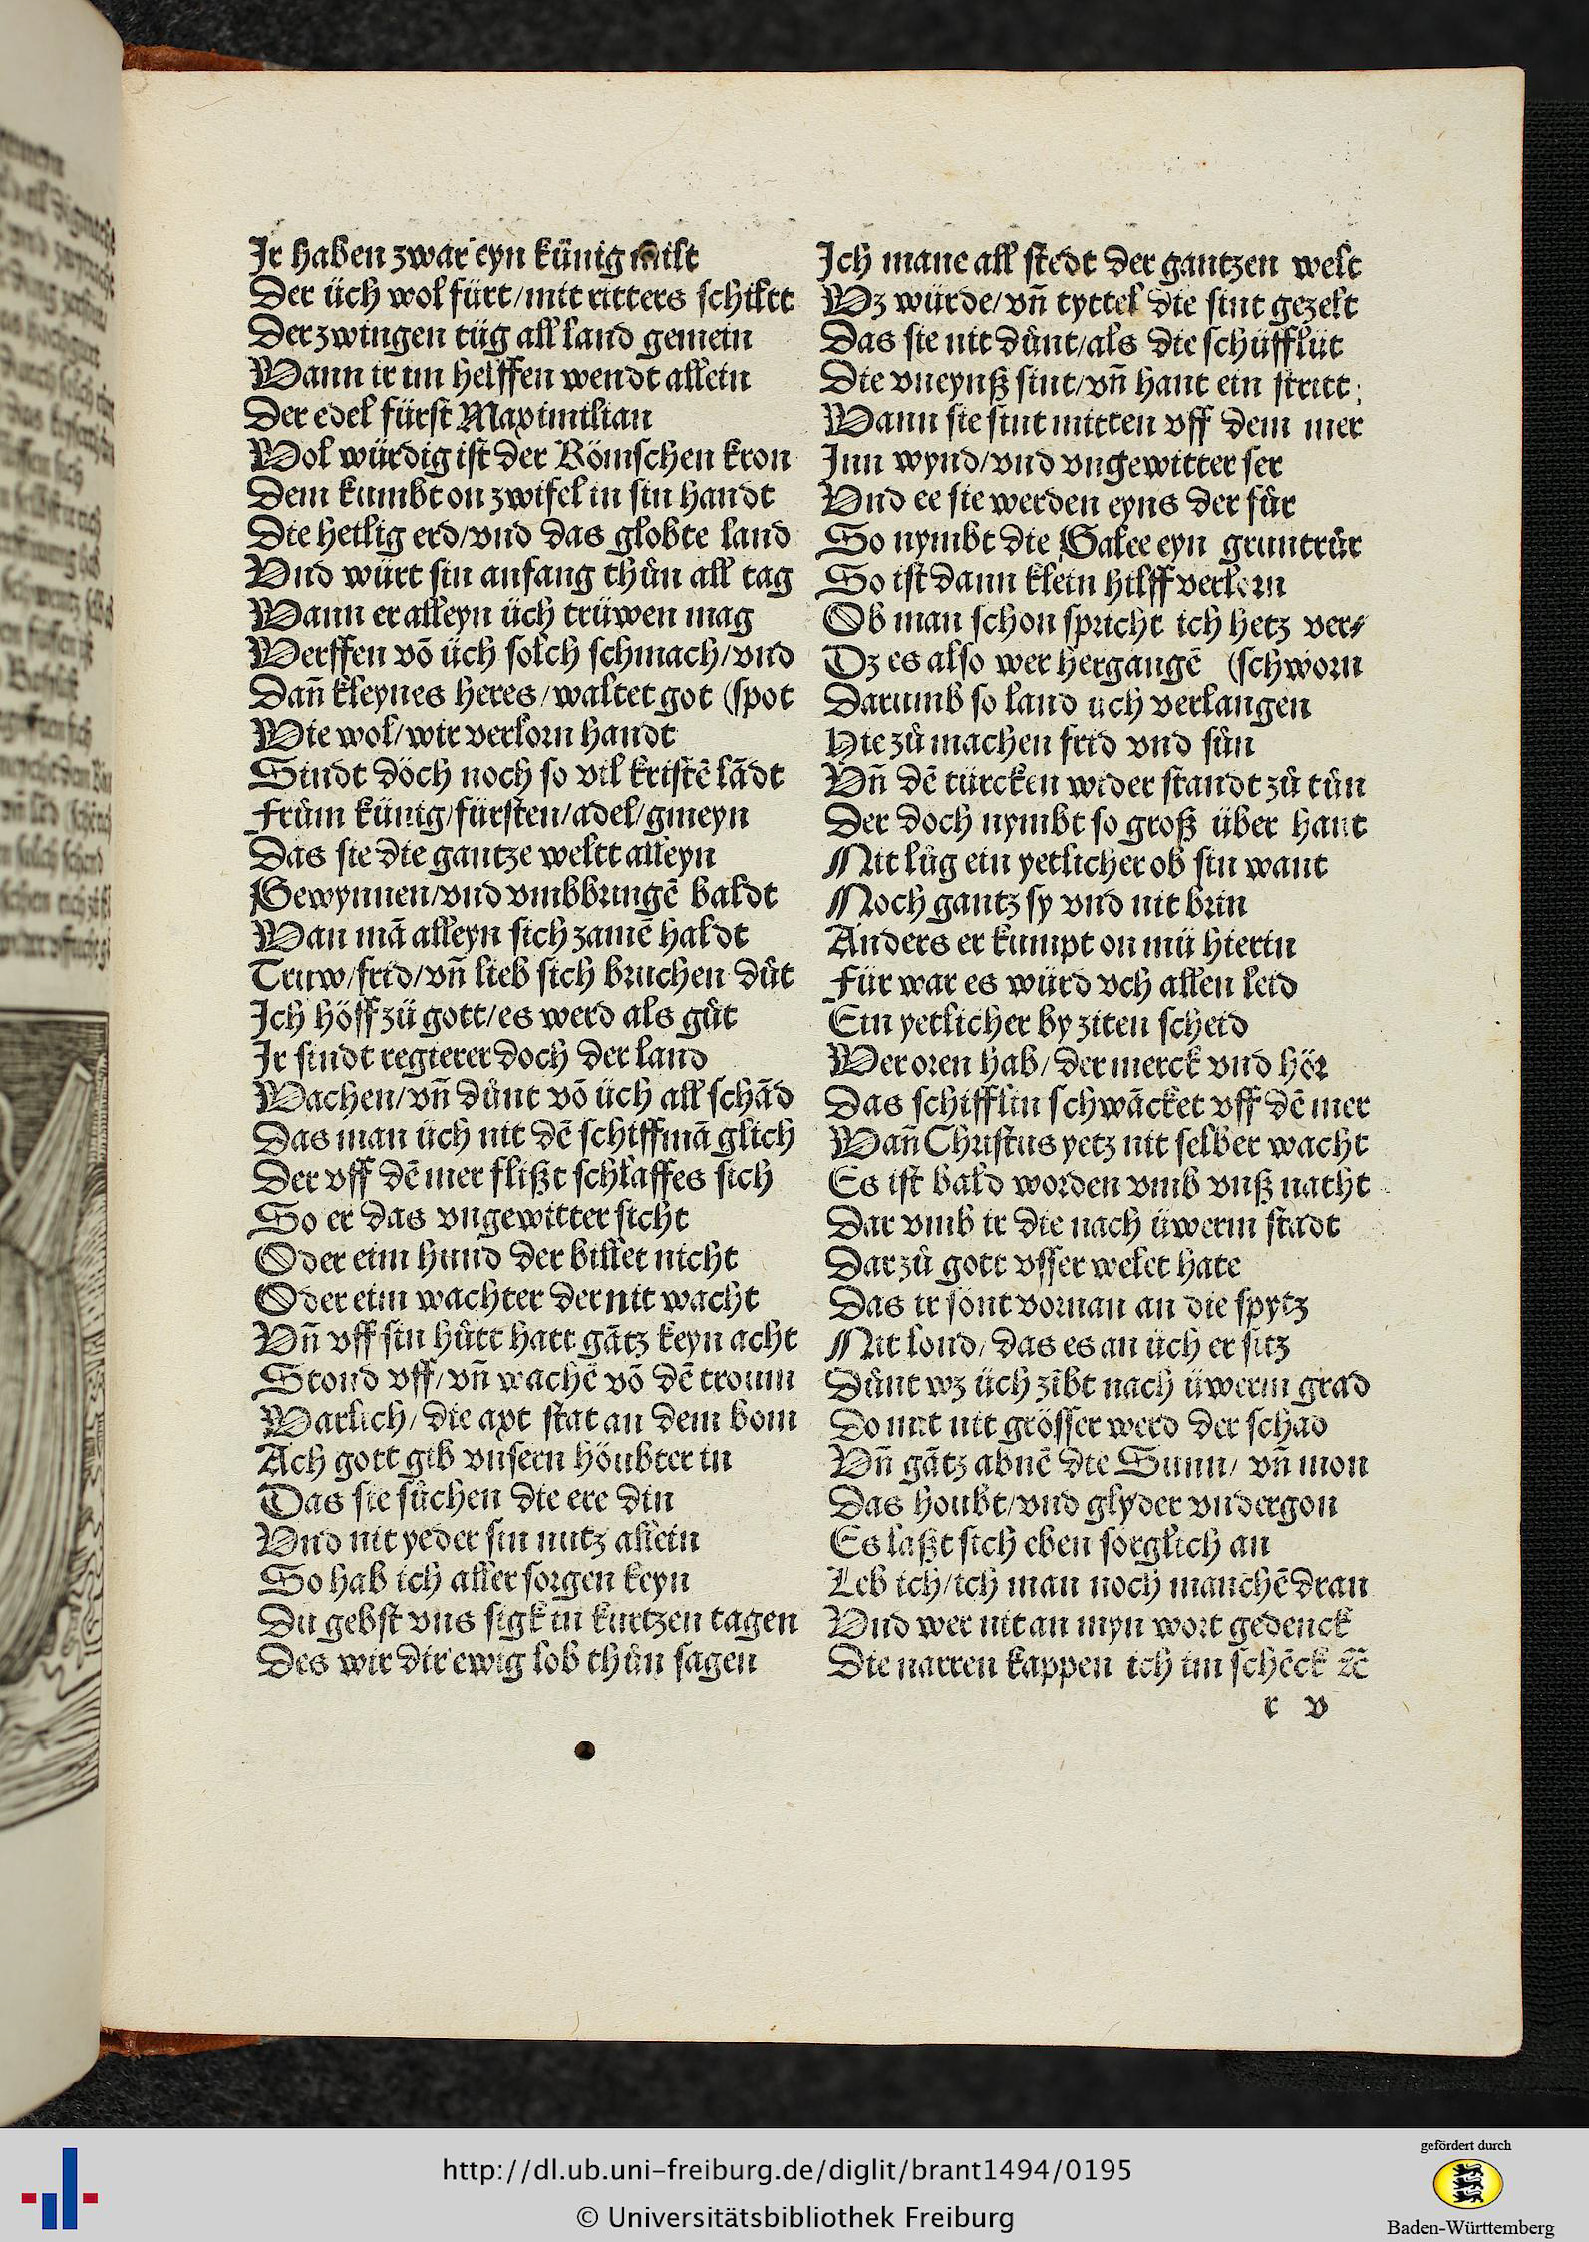 Jr haben zwar eyn künig milt
Der üch wol fürt/mit ritters schiltt
Der zwingen tüg all land gemein
Wann ir im helffen wendt allein
Der edel fürst Maximilian
Wol würdig ist der Römschen kron
Dem kumbt on zwifel in sin handt
Die heilig erd/vnd das globte land
Vnd würt sin anfang thůn all tag
Wann er alleyn üch trüwen mag
Werffen vō üch solch schmach/vnd
Dañ kleynes heres/waltet got (spot
Wie wol/wir verlorn handt
Sindt döch noch so vil kristē lādt
Frům künig/fürsten/adel/gmeyn
Das sie die gantze weltt alleyn
Gewynnen/vnd vmbbringē baldt
Wan mā alleyn sich zamē haldt
Truw/frid/vñ lieb sich bruchen důt
Ich höff zů gott/es werd als gůt
Jr sindt regierer doch der land
Wachen/vñ důnt vō üch all schād
Das man üch nit dē schiffmā glich
Der vff dē mer flißt schlaffes sich
So er das vngewitter sicht
Oder eim hund der billet nicht
Oder eim wachter der nit wacht
Vñ vff sin hůtt hatt gātz keyn acht
Stond vff/vñ wachē vō dē troum
Warlich/die axt stat an dem bom
Ach gott gib vnsern höubter in
Das sie sůchen die ere din
Vnd nit yeder sin nutz allein
So hab ich aller sorgen keyn
Du gebst vns sigk in kurtzen tagen
Des wir dir ewig lob thůn sagen
Ich mane all stedt der gantzen welt
Wz würde/vñ tyttel die sint gezelt
Das sie nit důnt/als die schüfflüt
Die vneynß sint/vñ hant ein stritt;
Wann sie sint mitten vff dem mer
Inn wynd/vnd vngewitter ser
Vnd ee sie werden eyns der fůr
So nymbt die Galee eyn gruntrůr
So ist dann klein hilff verlorn
Ob man schon spricht ich hetz ver⸗
Dz es also wer hergangē (schworn
Darumb so land üch verlangen
Hie zů machen frid vnd sůn
Vñ dē türcken wider standt zů tůn
Der doch nymbt so groß über hant
Nit lůg ein yetlicher ob sin want
Noch gantz sy vnd nit brin
Anders er kumpt on mü hierin
Für war es würd vch allen leid
Ein yetlicher by ziten scheid
Wer oren hab/der merck vnd hör
Das schifflin schwācket vff dē mer
Wañ Christus yetz nit selber wacht
Es ist bald worden vmb vnß nacht
Dar vmb ir die nach üwerm stadt
Dar zů gott vsser welet hatt
Das ir sönt vornan an die spytz
Nit lond/das es an üch er sitz
Důnt wz üch zībt nach üwerm grad
Do mit nit grösser werd der schad
Vñ gātz abnē die Sunn/vñ mon
Das houbt/vnd glyder vndergon
Es laßt sich eben sörglich an
Leb ich/ich man noch manchē dran
Vnd wer nit an myn wort gedenck
Die narren kappen ich im schēck ꝛc̄
r v
http://dl.ub.uni-freiburg.de/diglit/brant1494/0195
© Universitätsbibliothek Freiburg
gefördert durch
Baden-Württemberg